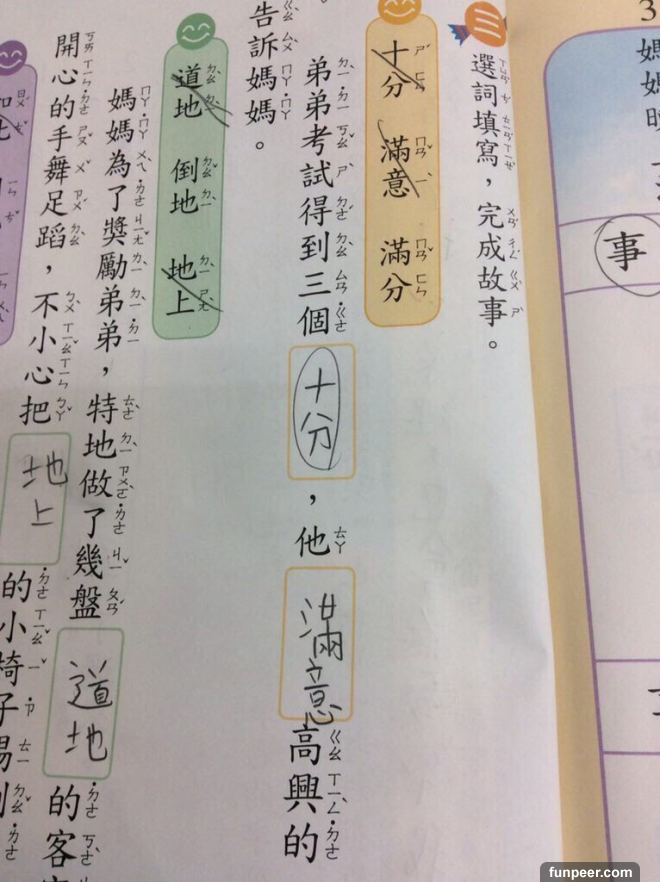 三
選詞填寫，完成故事。
十分 滿意 滿分
弟弟考試得到三個十分，他滿意高興的
告訴媽媽。
道地 倒地 地上
媽媽為了獎勵弟弟，特地做了幾盤道地的客
開心的手舞足蹈，不小心把地上的小椅子踢倒
事
3
媽媽
funpeer.com